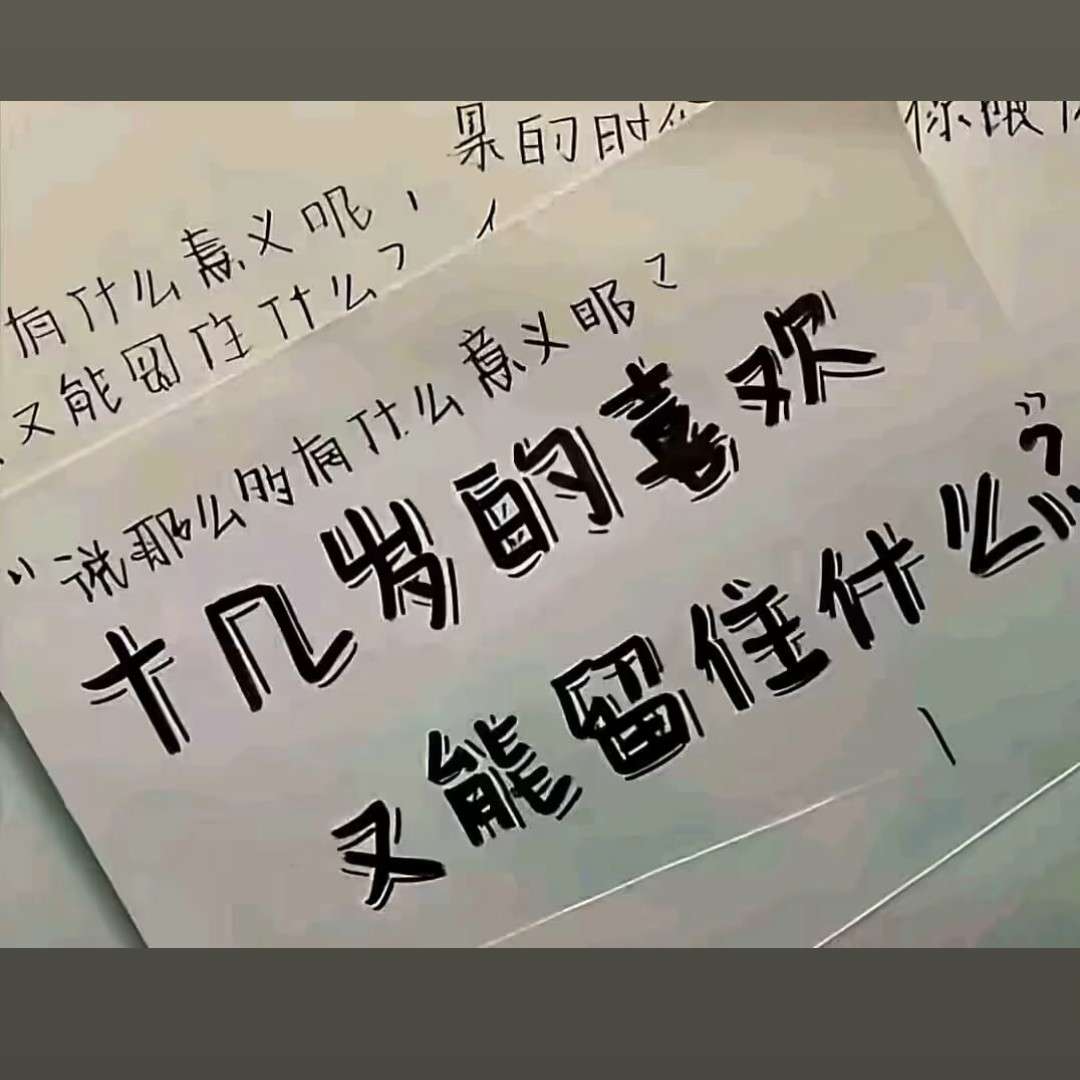 果的时
你
有什么意义呢，
又能留住什么？
“说那么的有什么意义呢？
十几岁的喜欢
又能留住什么？”